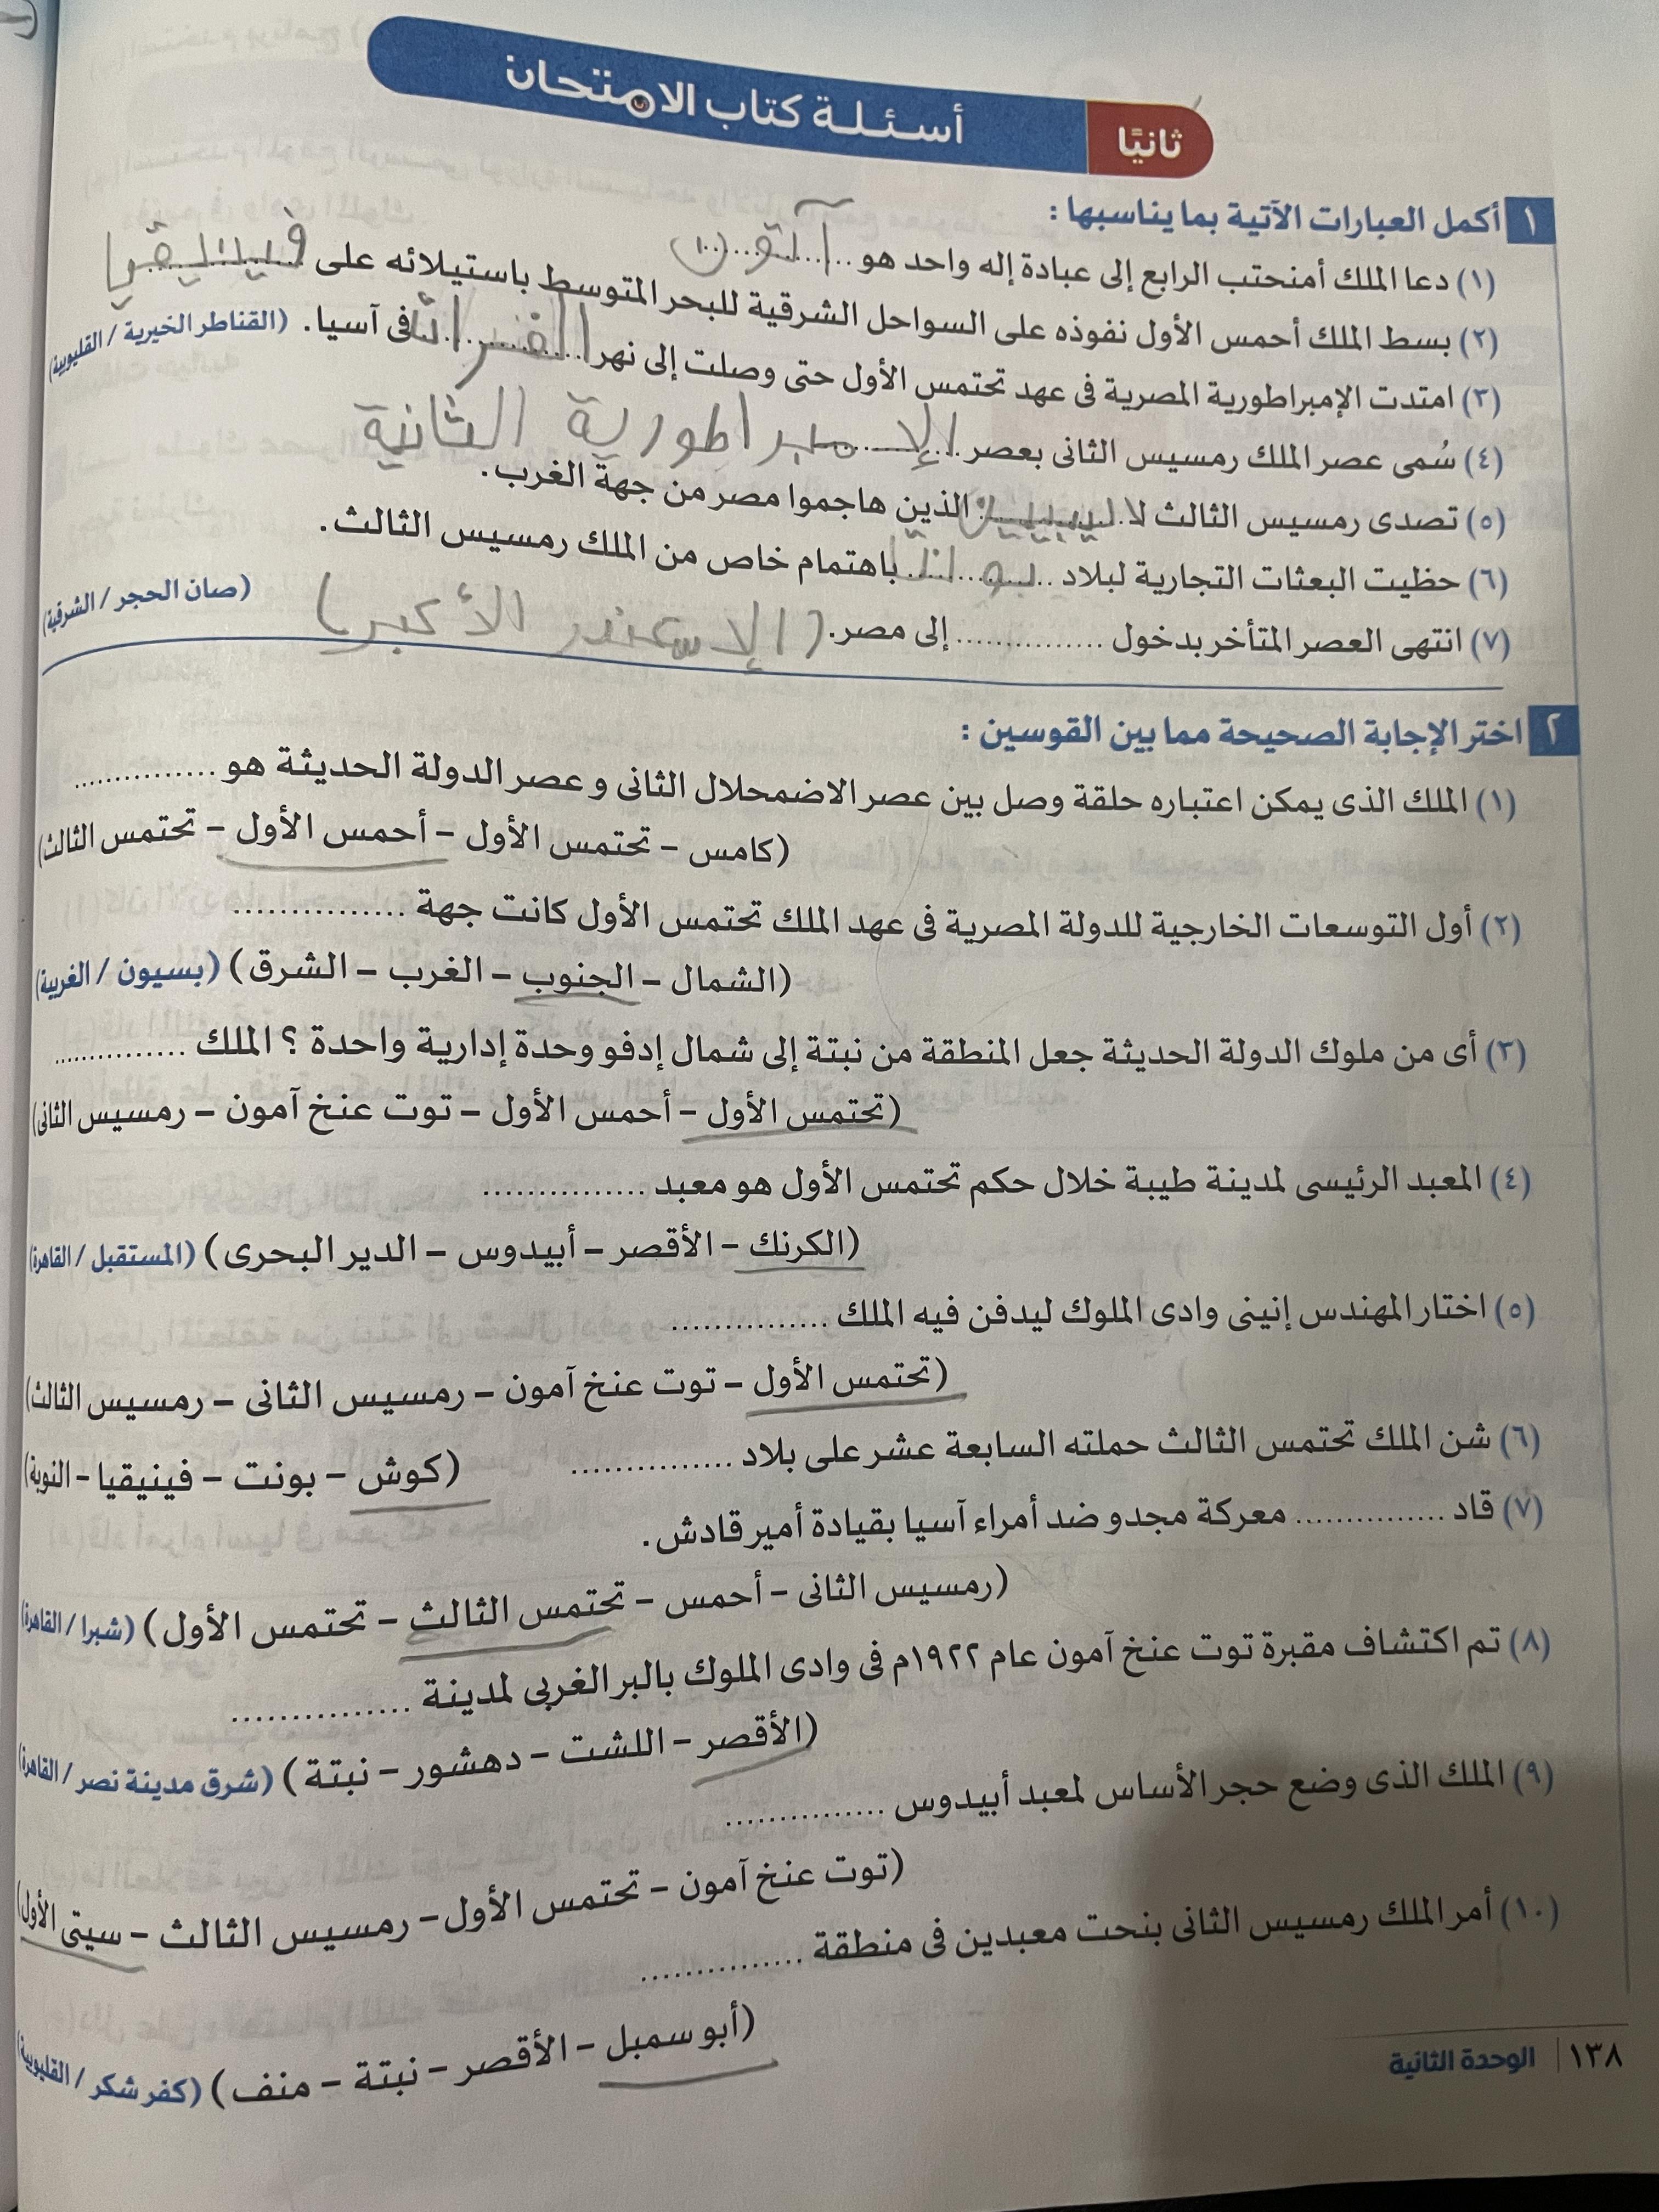 ثانيًا أسئلة كتاب الامتحان
١ أكمل العبارات الآتية بما يناسبها :
(١) دعا الملك أمنحتب الرابع إلى عبادة إله واحد هو آتون
(٢) بسط الملك أحمس الأول نفوذه على السواحل الشرقية للبحر المتوسط باستيلائه على فينيقيا
(٣) امتدت الإمبراطورية المصرية فى عهد تحتمس الأول حتى وصلت إلى نهر الفرات فى آسيا. (القناطر الخيرية / القليوبية)
(٤) سُمى عصر الملك رمسيس الثانى بعصر الإمبراطورية الثانية
(٥) تصدى رمسيس الثالث لا ليبيين الذين هاجموا مصر من جهة الغرب.
(٦) حظيت البعثات التجارية لبلاد بونت باهتمام خاص من الملك رمسيس الثالث.
(٧) انتهى العصر المتأخر بدخول ............... إلى مصر. (الإسكندر الأكبر) (صان الحجر / الشرقية)
٢ اختر الإجابة الصحيحة مما بين القوسين :
(١) الملك الذى يمكن اعتباره حلقة وصل بين عصر الاضمحلال الثانى و عصر الدولة الحديثة هو ...............
(كامس – تحتمس الأول – أحمس الأول – تحتمس الثالث)
(٢) أول التوسعات الخارجية للدولة المصرية فى عهد الملك تحتمس الأول كانت جهة ...............
(الشمال – الجنوب – الغرب – الشرق) (بسيون / الغربية)
(٣) أى من ملوك الدولة الحديثة جعل المنطقة من نبتة إلى شمال إدفو وحدة إدارية واحدة ؟ الملك ...............
(تحتمس الأول – أحمس الأول – توت عنخ آمون – رمسيس الثانى)
(٤) المعبد الرئيسى لمدينة طيبة خلال حكم تحتمس الأول هو معبد ...............
(الكرنك – الأقصر – أبيدوس – الدير البحرى) (المستقبل / القاهرة)
(٥) اختار المهندس إنينى وادى الملوك ليدفن فيه الملك ...............
(تحتمس الأول – توت عنخ آمون – رمسيس الثانى – رمسيس الثالث)
(٦) شن الملك تحتمس الثالث حملته السابعة عشر على بلاد ...............
(كوش – بونت – فينيقيا – النوبة)
(٧) قاد ............... معركة مجدو ضد أمراء آسيا بقيادة أمير قادش.
(رمسيس الثانى – أحمس – تحتمس الثالث – تحتمس الأول) (شبرا / القاهرة)
(٨) تم اكتشاف مقبرة توت عنخ آمون عام ١٩٢٢م فى وادى الملوك بالبر الغربى لمدينة ...............
(الأقصر – اللشت – دهشور – نبتة) (شرق مدينة نصر / القاهرة)
(٩) الملك الذى وضع حجر الأساس لمعبد أبيدوس ...............
(توت عنخ آمون – تحتمس الأول – رمسيس الثالث – سيتى الأول)
(١٠) أمر الملك رمسيس الثانى بنحت معبدين فى منطقة ...............
(أبو سمبل – الأقصر – نبتة – منف) (كفر شكر / القليوبية)
١٣٨ | الوحدة الثانية